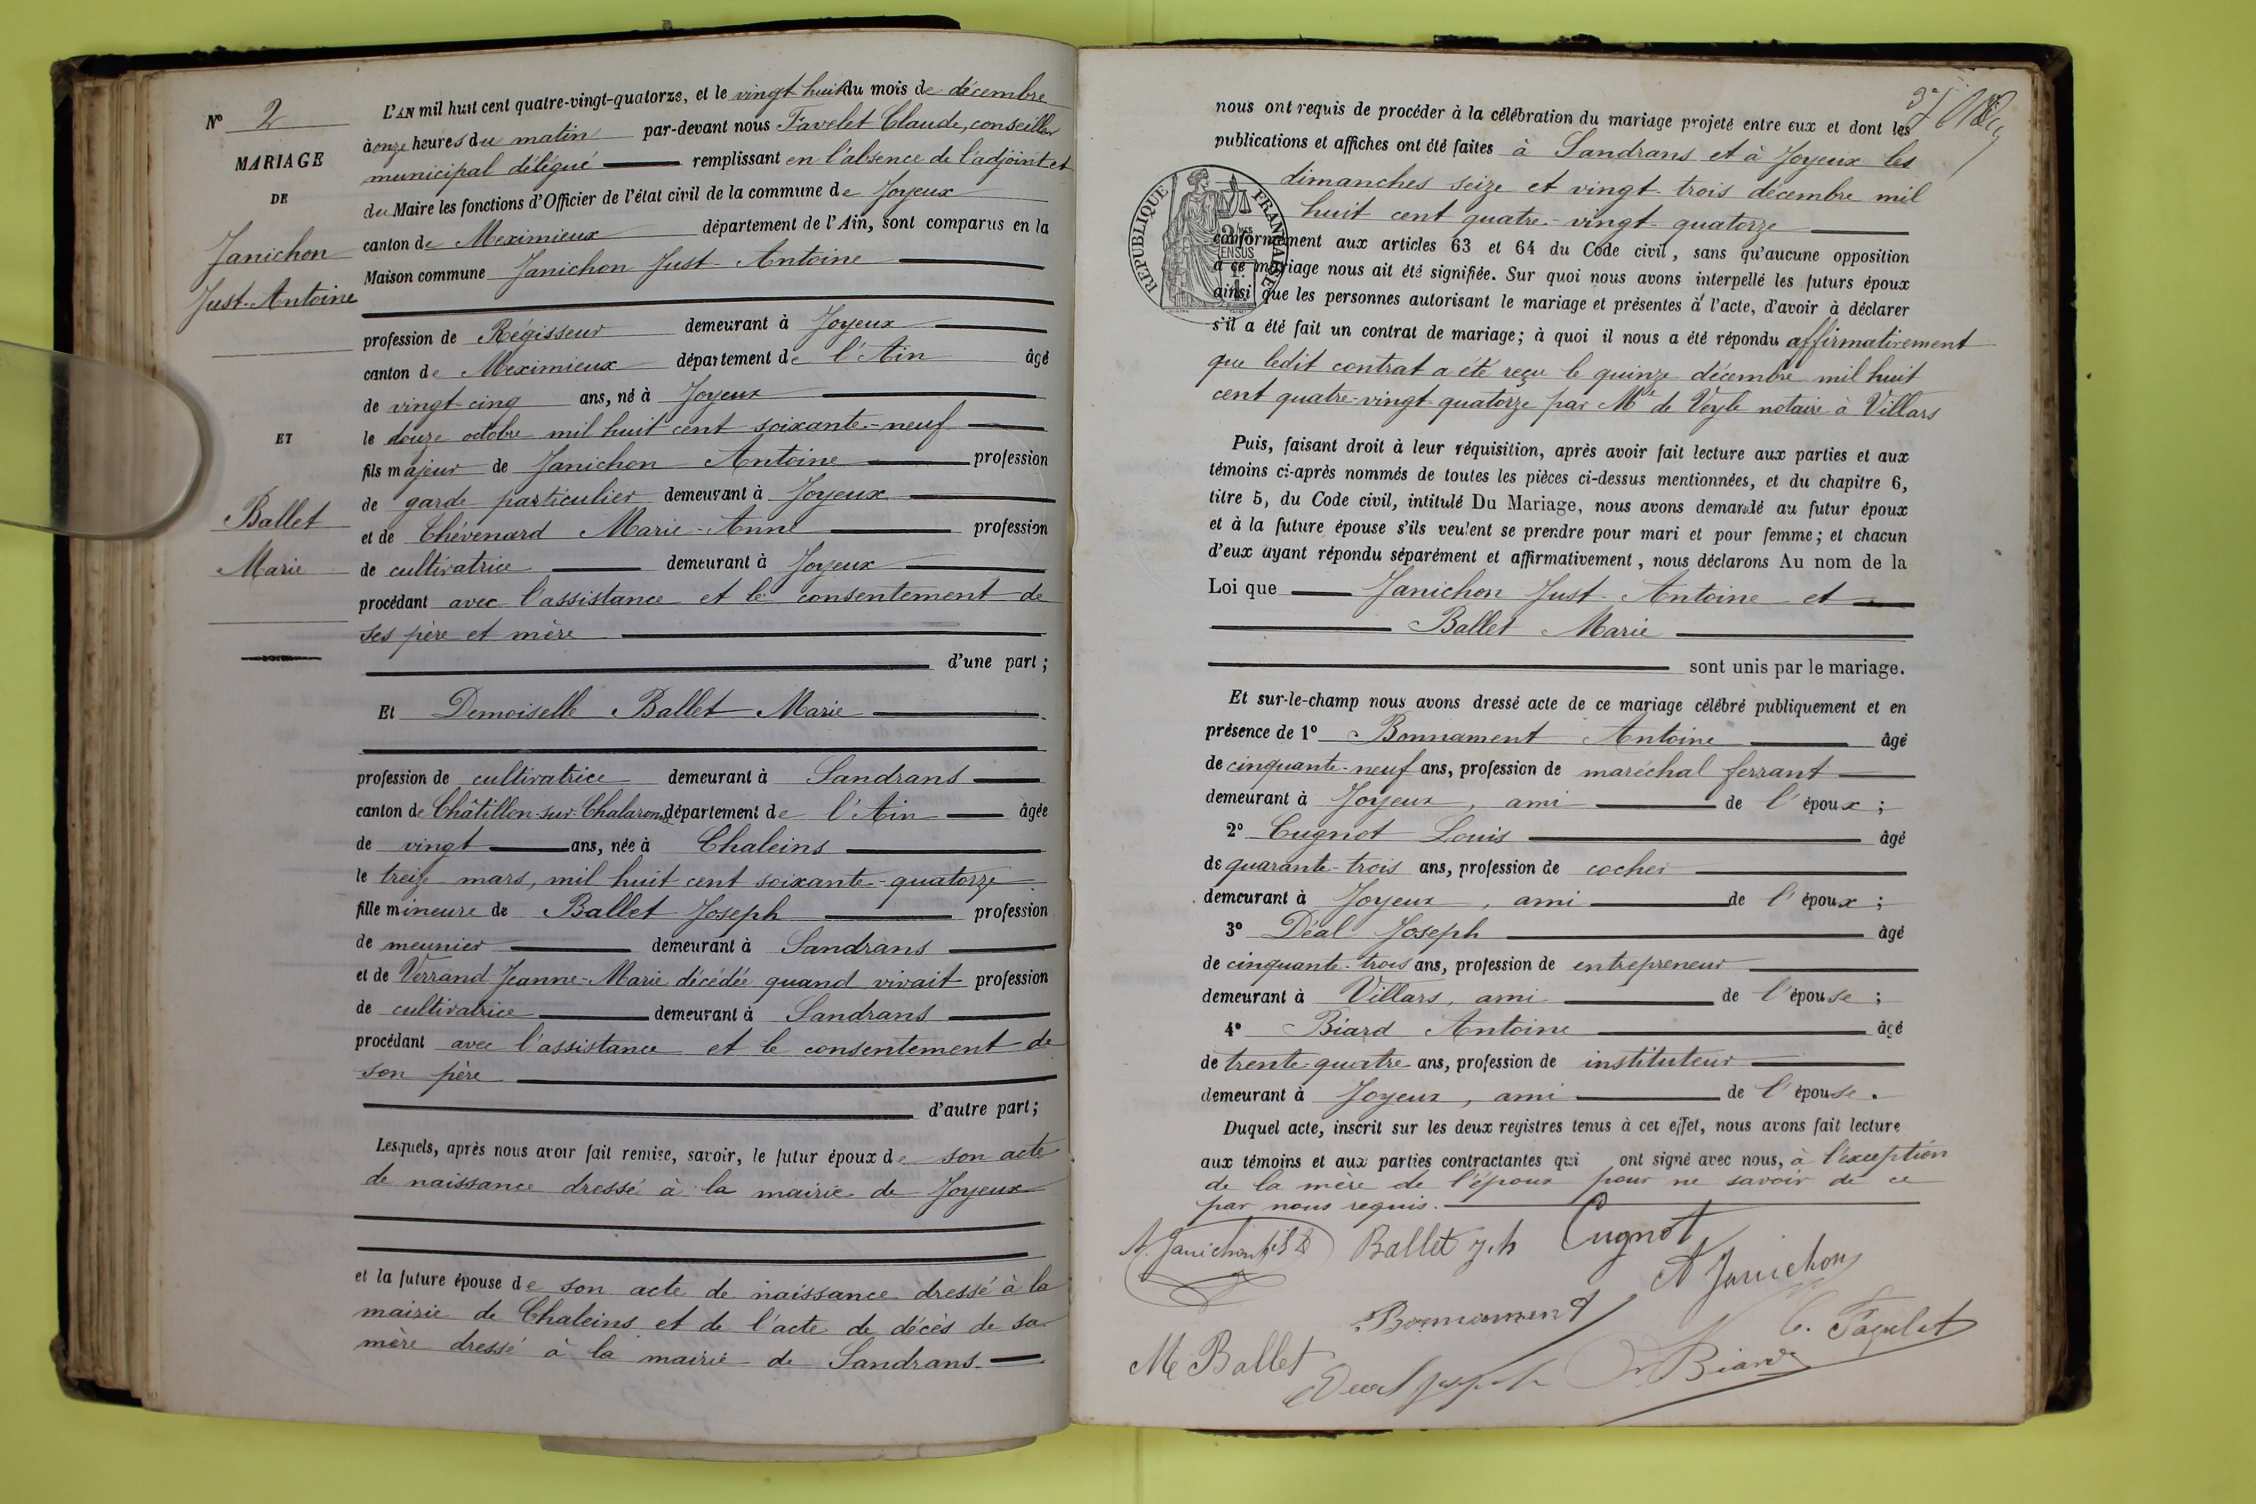 N° 2
MARIAGE
DE
Janichon
Just-Antoine
ET
Ballet
Marie
L'AN mil huit cent quatre-vingt-quatorze, et le vingt huit du mois de décembre
à onze heures du matin par-devant nous Favelet Claude, conseiller
municipal délégué remplissant en l'absence de l'adjoint et
du Maire les fonctions d'Officier de l'état civil de la commune de Joyeux
canton de Meximieux département de l'Ain, sont comparus en la
Maison commune Janichon Just-Antoine
profession de Régisseur demeurant à Joyeux
canton de Meximieux département de l'Ain âgé
de vingt-cinq ans, né à Joyeux
le douze octobre mil huit cent soixante-neuf
fils majeur de Janichon Antoine profession
de garde particulier demeurant à Joyeux
et de Thévenard Marie-Anne profession
de cultivatrice demeurant à Joyeux
procédant avec l'assistance et le consentement de
ses père et mère
d'une part;
Et Demoiselle Ballet Marie
profession de cultivatrice demeurant à Sandrans
canton de Châtillon-sur-Chalaronne département de l'Ain âgée
de vingt ans, née à Chaleins
le treize mars, mil huit cent soixante-quatorze
fille mineure de Ballet Joseph profession
de meunier demeurant à Sandrans
et de Verrand Jeanne-Marie décédée quand vivait profession
de cultivatrice demeurant à Sandrans
procédant avec l'assistance et le consentement de
son père
d'autre part;
Lesquels, après nous avoir fait remise, savoir, le futur époux de son acte
de naissance dressé à la mairie de Joyeux
et la future épouse de son acte de naissance dressé à la
mairie de Chaleins et de l'acte de décès de sa
mère dressé à la mairie de Sandrans.
nous ont requis de procéder à la célébration du mariage projeté entre eux et dont les
publications et affiches ont été faites à Sandrans et à Joyeux les
dimanches seize et vingt-trois décembre mil
huit cent quatre-vingt-quatorze
RÉPUBLIQUE FRANÇAISE
conformément aux articles 63 et 64 du Code civil, sans qu'aucune opposition
à ce mariage nous ait été signifiée. Sur quoi nous avons interpellé les futurs époux
ainsi que les personnes autorisant le mariage et présentes à l'acte, d'avoir à déclarer
s'il a été fait un contrat de mariage; à quoi il nous a été répondu affirmativement
que ledit contrat a été reçu le quinze décembre mil huit
cent quatre-vingt-quatorze par Mtre de Veyle notaire à Villars
Puis, faisant droit à leur réquisition, après avoir fait lecture aux parties et aux
témoins ci-après nommés de toutes les pièces ci-dessus mentionnées, et du chapitre 6,
titre 5, du Code civil, intitulé Du Mariage, nous avons demandé au futur époux
et à la future épouse s'ils veulent se prendre pour mari et pour femme; et chacun
d'eux ayant répondu séparément et affirmativement, nous déclarons Au nom de la
Loi que Janichon Just-Antoine et
Ballet Marie
sont unis par le mariage.
Et sur-le-champ nous avons dressé acte de ce mariage célébré publiquement et en
présence de 1° Bonnament Antoine âgé
de cinquante-neuf ans, profession de maréchal ferrant
demeurant à Joyeux, ami de l'époux;
2° Cugnot Louis âgé
de quarante-trois ans, profession de cocher
demeurant à Joyeux, ami de l'époux;
3° Déal Joseph âgé
de cinquante-trois ans, profession de entrepreneur
demeurant à Villars, ami de l'épouse;
4° Biard Antoine âgé
de trente-quatre ans, profession de instituteur
demeurant à Joyeux, ami de l'épouse.
Duquel acte, inscrit sur les deux registres tenus à cet effet, nous avons fait lecture
aux témoins et aux parties contractantes qui ont signé avec nous, à l'exception
de la mère de l'époux pour ne savoir de ce
par nous requis.
A. Janichon fils Ballet Jph Cugnot
A Janichon
Bonnament C. Favelet
M Ballet Deal Joseph Biard